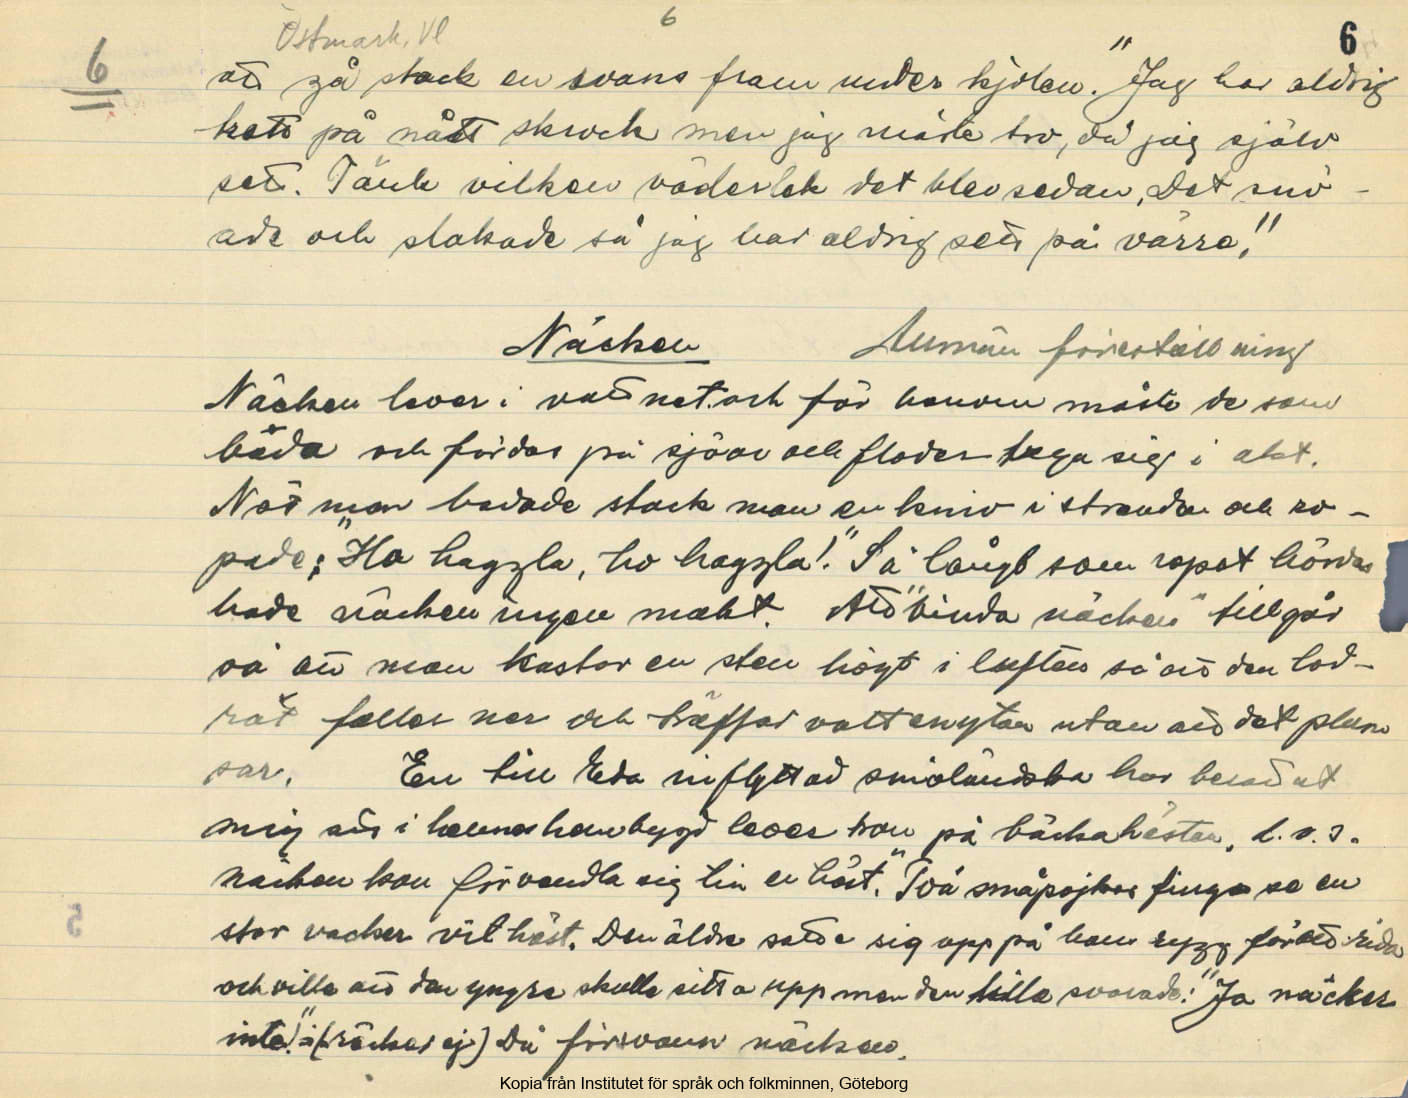 6
Östmark, Vl
6
6
att gå stack en svans fram under kjolen." "Jag har aldrig
trott på nått skrock men jag måste tro, då jag själv
sett. Tänk vilken väderlek det blev sedan, Det snö-
ade och slakade så jag har aldrig sett på värre!"
Näcken
Allmän föreställning
Näcken lever i vattnet och för honom måste de som
båda och färdas på sjöar och floder taga sig i akt.
När man badade stack man en kniv i stranden och ro-
pade: "Ho haggla, ho haggla!" Så långt som ropet hördes
hade näcken ingen makt. Att "binda näcken" tillgår
så att man kastar en sten högt i luften så att den lod-
rät faller ner och träffar vattenytan utan att det plum
sar. En till Eda inflyttad småländska har berättat
mig att i hennes hembygd lever tron på bäckahästen, d.v.s.
näcken kan förvandla sig till en häst. "Två småpojkar fingo se en
stor vacker vit häst. Den äldre satte sig upp på hans rygg för att rida
och ville att den yngre skulle sitta upp men den lille svarade: "Ja näcker
inte!" (räcker ej) Då försvann näcken.
5
Kopia från Institutet för språk och folkminnen, Göteborg